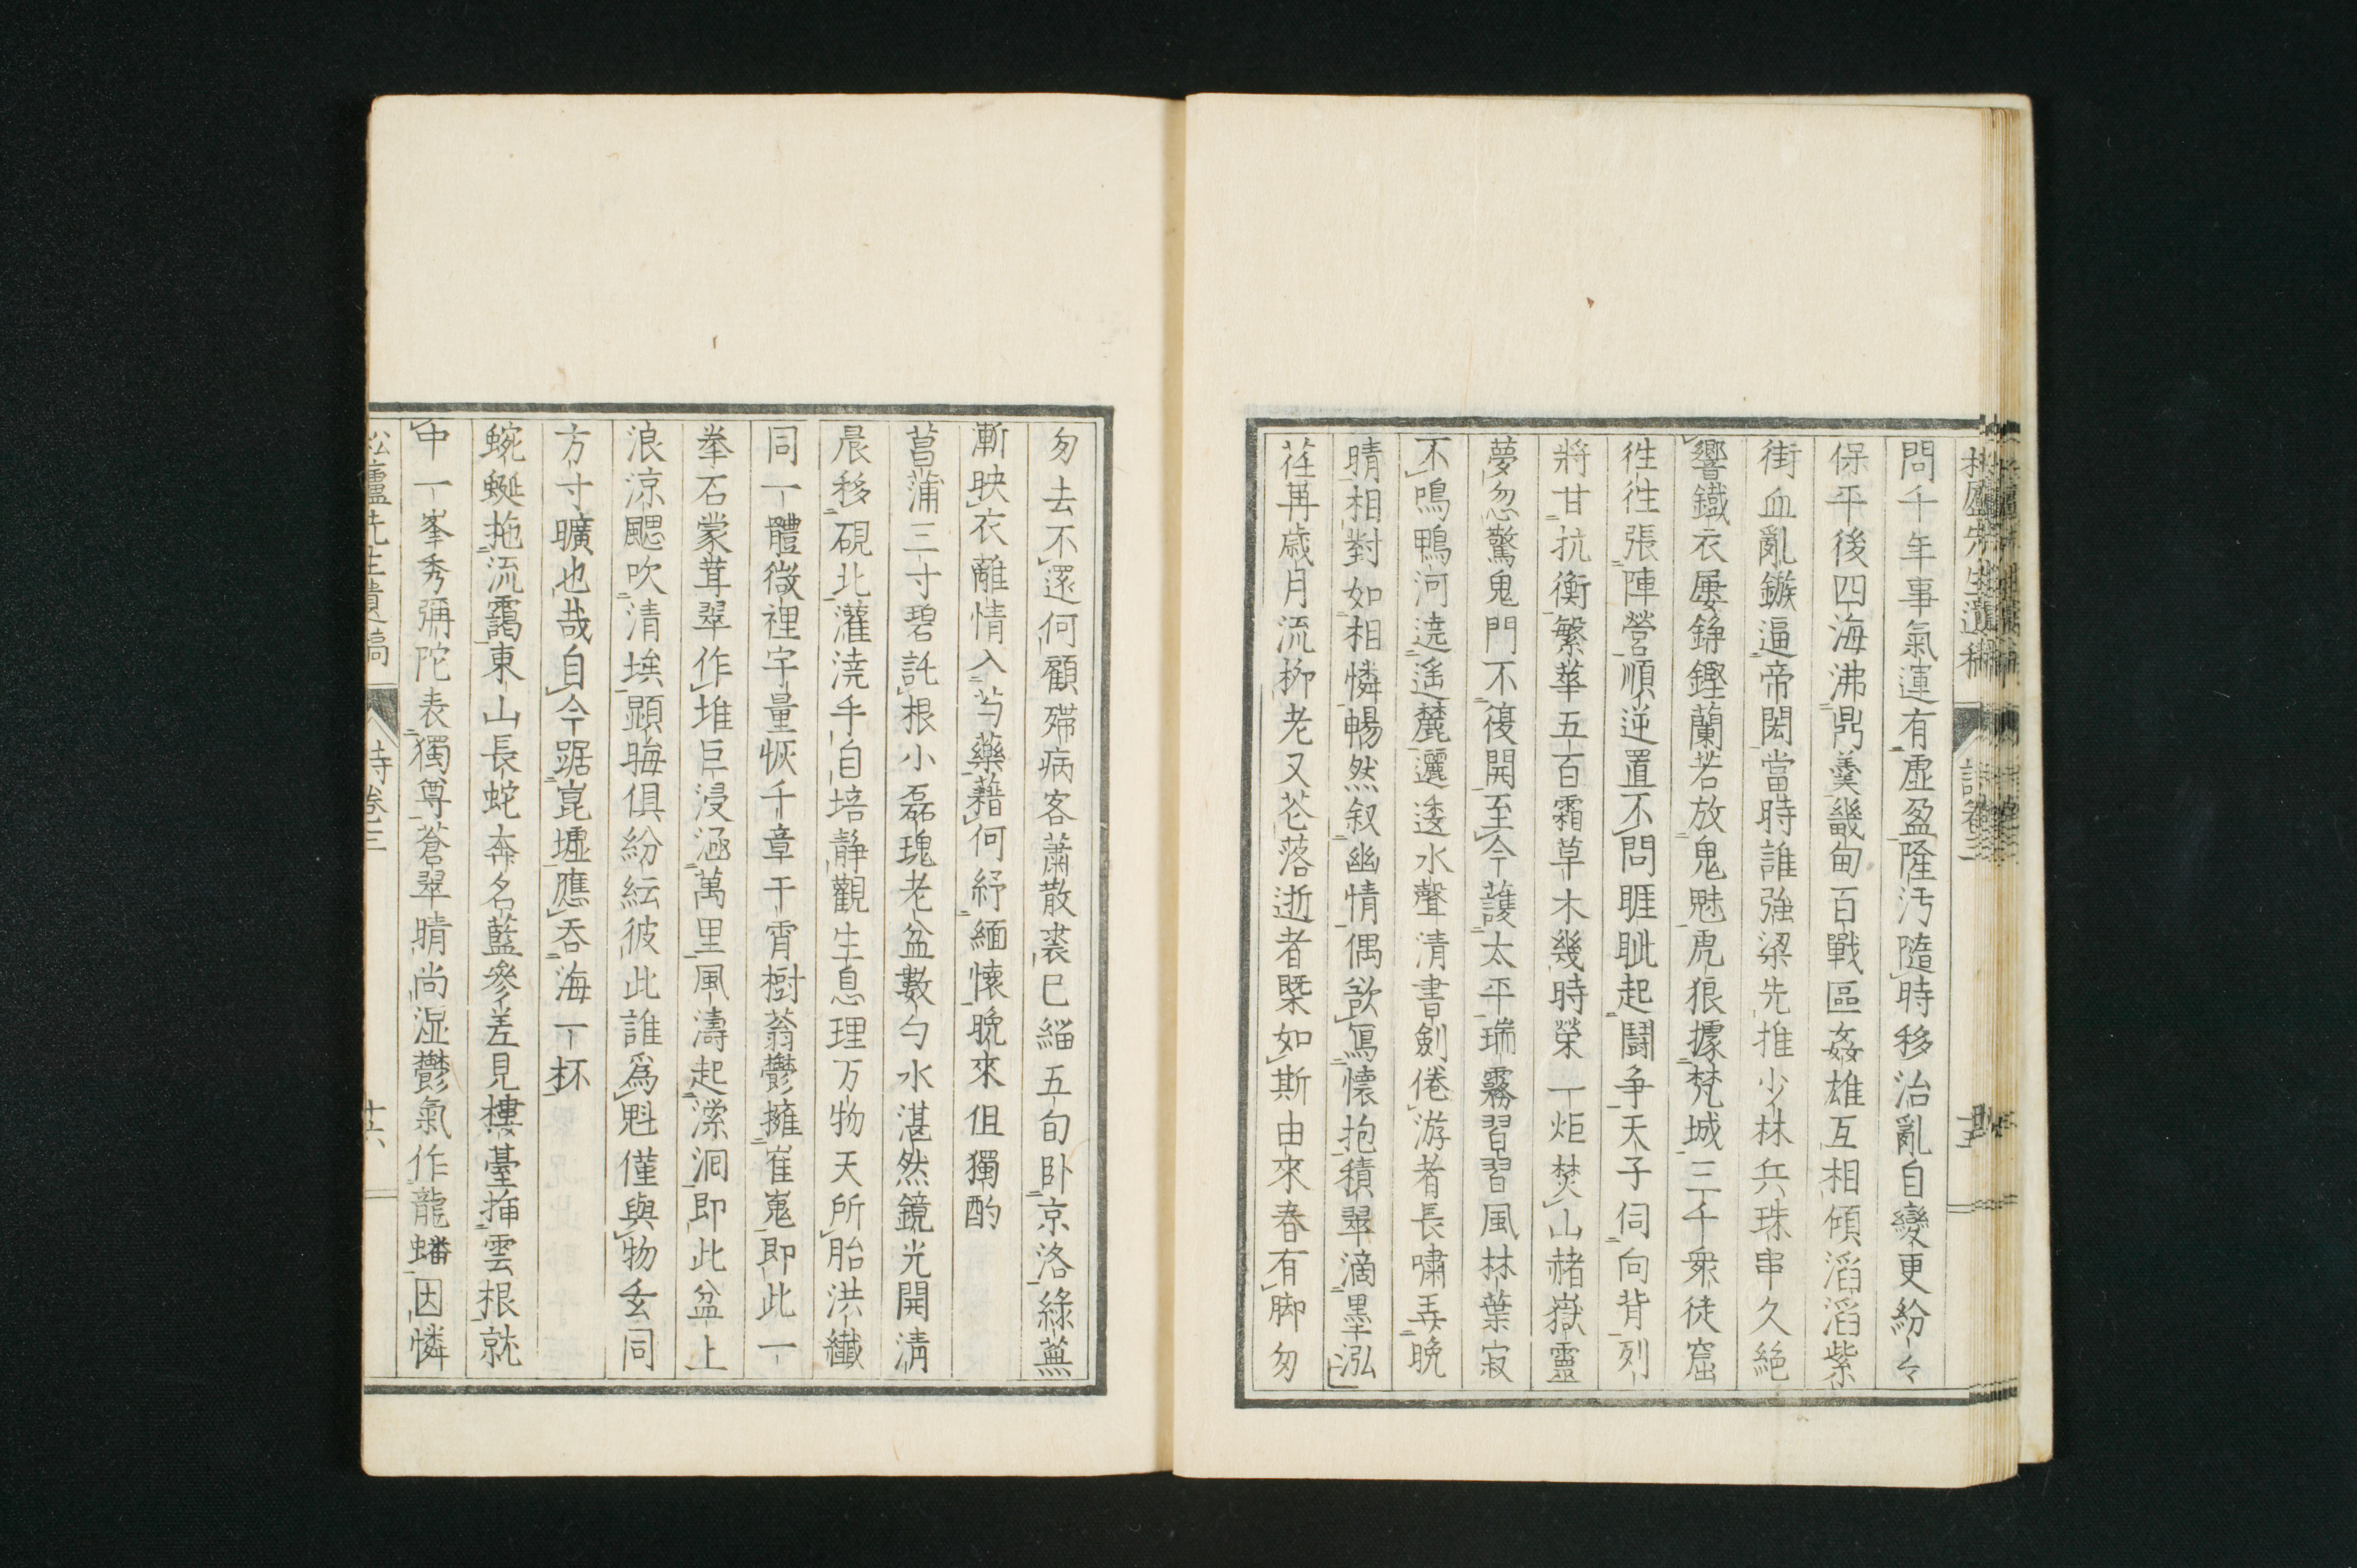 問千年事氣運有虛盈隆汚隨時移治亂自變更紛々
保平後四海沸鼎羹畿甸百戰區姦雄互相傾滔滔紫
街血亂鏃逼帝閎當時誰強梁先推少林兵珠串久絕
響鐵衣屢錚鏗蘭若放鬼魅虎狼據梵城三千衆徒窟
徃徃張陣營順逆置不問睚眦起鬪争天子伺向背列
將甘抗衡繁華五百霜草木幾時榮一炬焚山赭嶽靈
夢忽驚鬼門不復開至今護太平瑞霧習習風林葉寂
不鳴鴨河遶遙麓邐逶水聲清書劍倦游者長嘯弄晩
晴相對如相憐暢然叙幽情偶欲寫懷抱積翠滴墨泓
荏苒歲月流柳老又花落逝者槩如斯由來春有脚匆
匆去不還何顧殢病客蕭散裘已緇五旬卧京洛綠蕪
漸映衣離情入芍藥藉何紓緬懷晩來但獨酌
菖蒲三寸碧託根小磊瑰老盆數勺水湛然鏡光開淸
晨移硯北灌澆手自培靜觀生息理万物天所胎洪纖
同一體微裡宇量恢千章干霄樹蓊鬱擁崔嵬即此一
拳石蒙茸翠作堆巨浸涵萬里風濤起潆洄即此盆上
浪涼颸吹清埃顯晦俱紛紜彼此誰爲魁僅與物玄同
方寸曠也哉自今踞崑墟應吞海一杯
蜿蜒拖流靄東山長蛇奔名藍參差見樓臺揷雲根就
中一峯秀彌陀表獨尊蒼翠晴尚湿鬱氣作龍蟠因憐
松廬先生遺稿 詩卷三 廿六